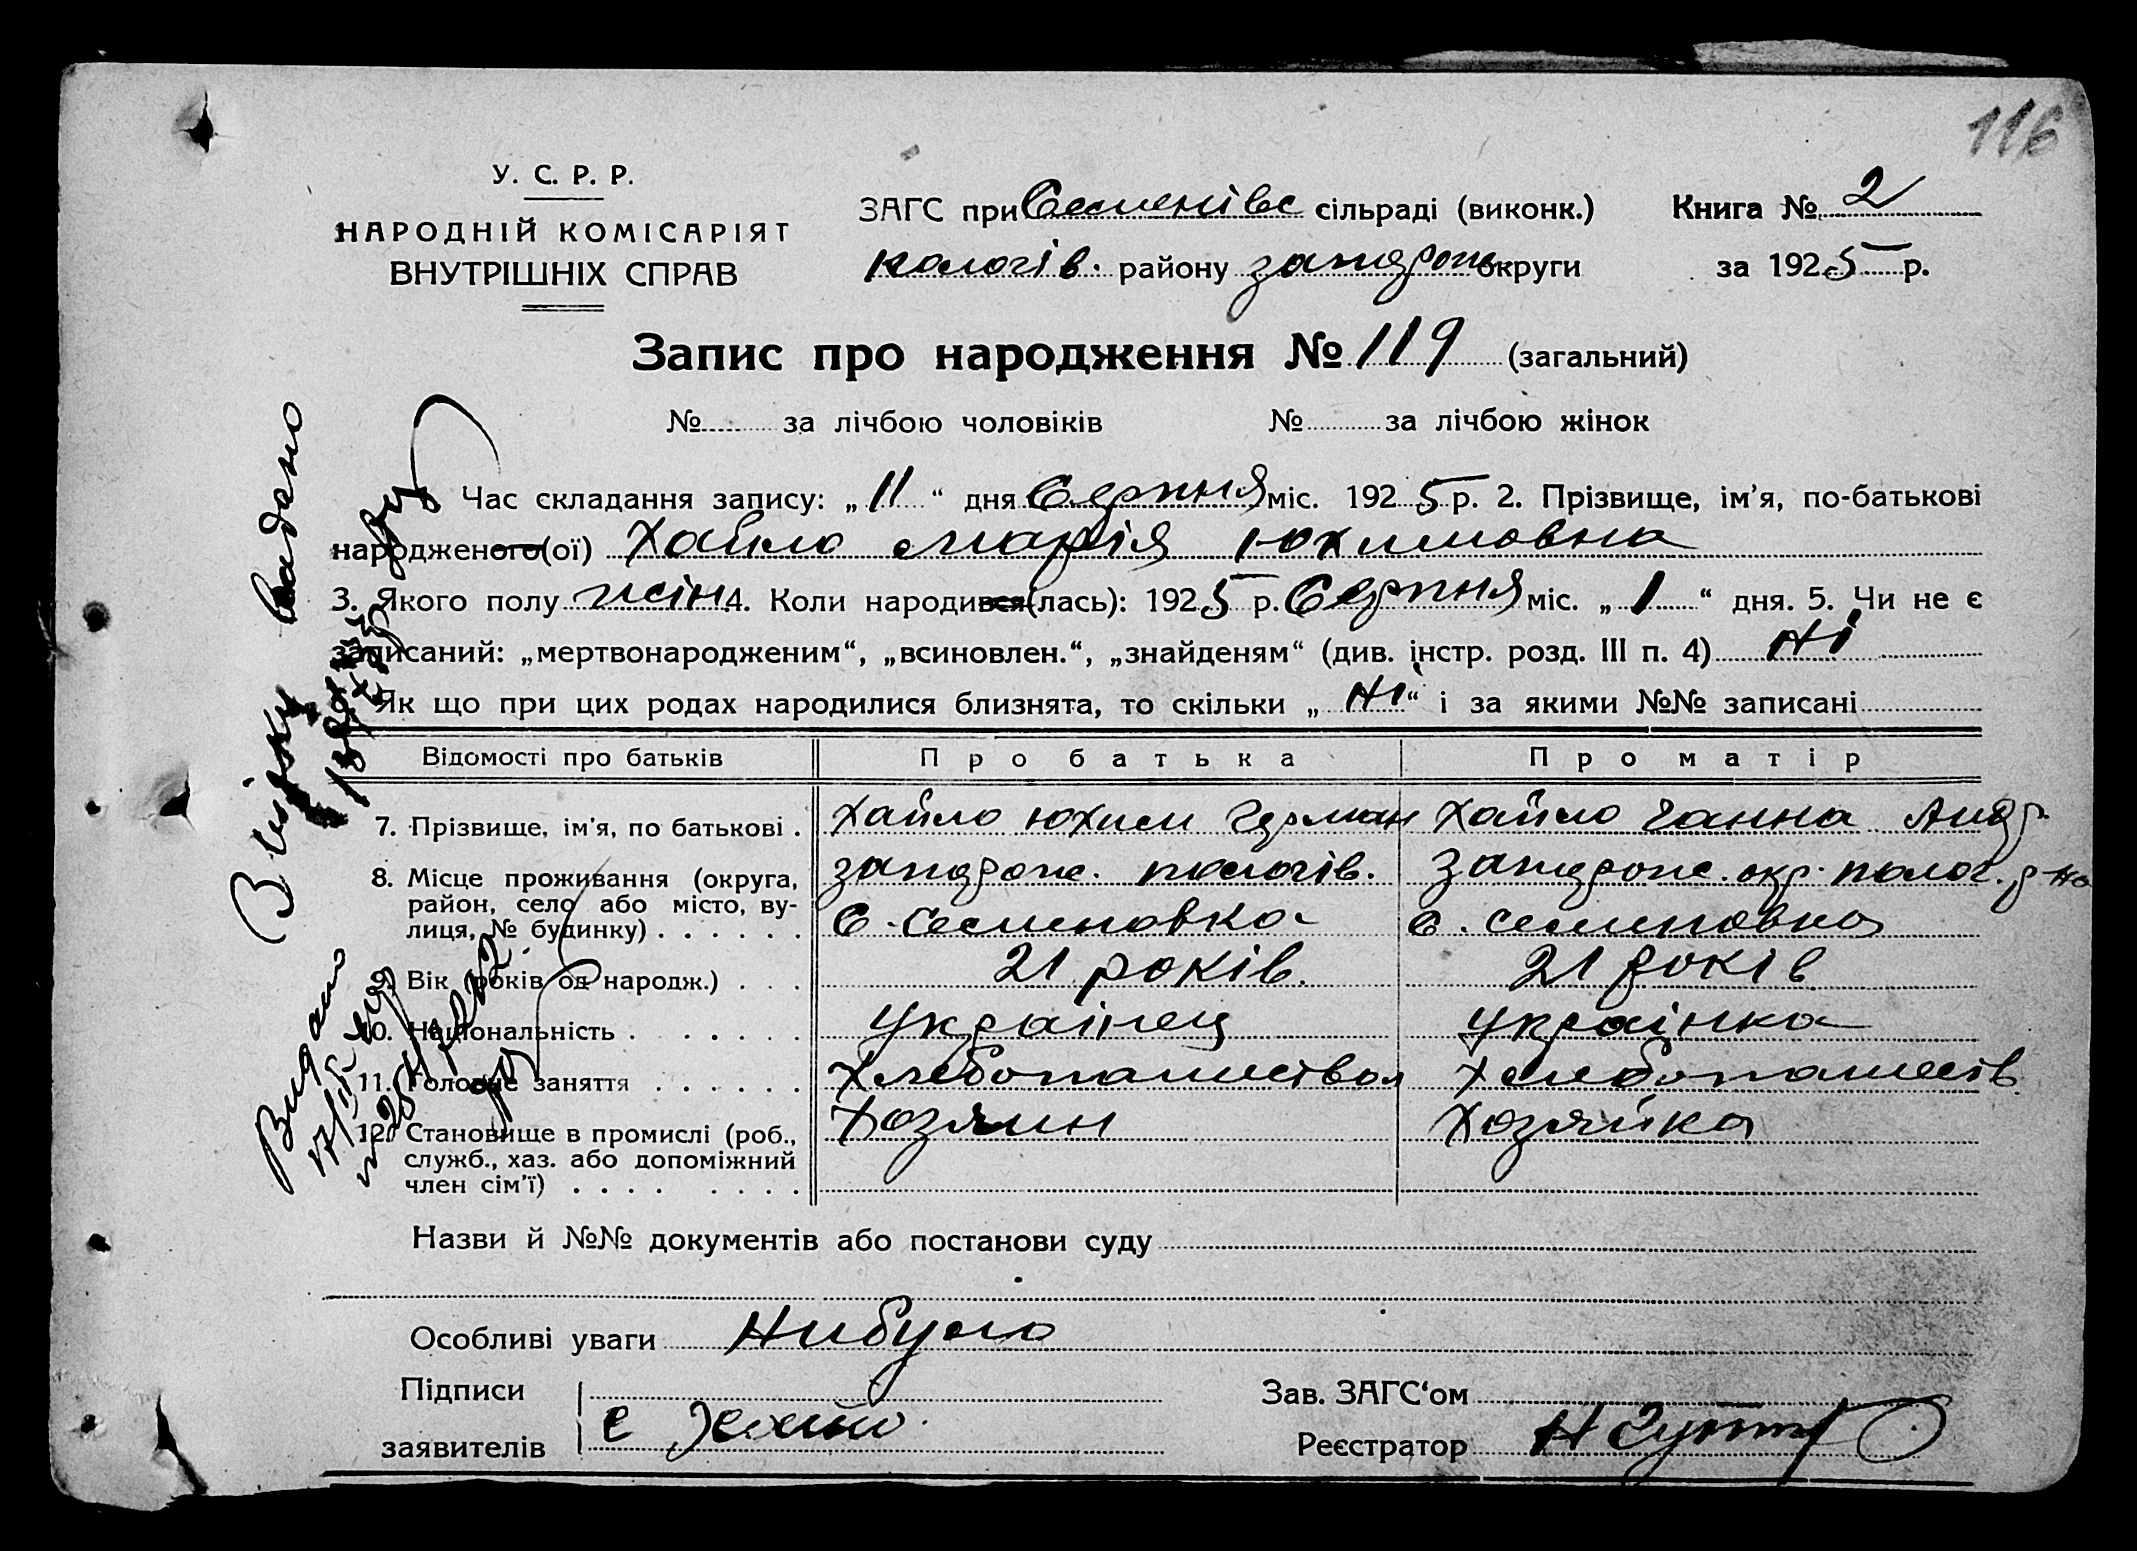 116
У. С. Р. Р.
НАРОДНІЙ КОМІСАРІЯТ
ВНУТРІШНІХ СПРАВ
ЗАГС при Семенівс сільраді (виконк.)
Книга № 2
пологів. району запорож округи
за 1925 р.
Запис про народження № 119 (загальний)
№ за лічбою чоловіків № за лічбою жінок
Час складання запису: „ 11 “ дня Серпня міс. 1925 р. 2. Прізвище, ім’я, по-батькові
народженого(ої) Хайло Марія Юхимовна
3. Якого полу жін 4. Коли народився(лась): 1925 р. Серпня міс. „ 1 “ дня. 5. Чи не є
записаний: „мертвонародженим“, „всиновлен.“, „знайденям“ (див. інстр. розд. III п. 4) Ні
Як що при цих родах народилися близнята, то скільки „ Ні “ і за якими №№ записані
Відомості про батьків Про батька Про матір
7. Прізвище, ім’я, по батькові . Хайло Юхим Герман Хайло Ганна Андр.
8. Місце проживання (округа, запорож. пологів. Запорож. окр. полог. р-на
район, село або місто, ву-
лиця, № будинку) . . . . . . С. Семеновка с. Семеновка
9. Вік (років од народж.) . . . 21 років. 21 років
10. Національність . . . . . . Українец українка
11. Головне заняття . . . . . . Хлебопашество Хлебопашеств
12. Становище в промислі (роб., Хозяин Хозяйка
служб., хаз. або допоміжний
член сім’ї) . . . . . . . .
Назви й №№ документів або постанови суду
Особливі уваги Нибуло
Підписи
заявителів Є Хайло
Зав. ЗАГС‘ом
Реєстратор Н
Видано